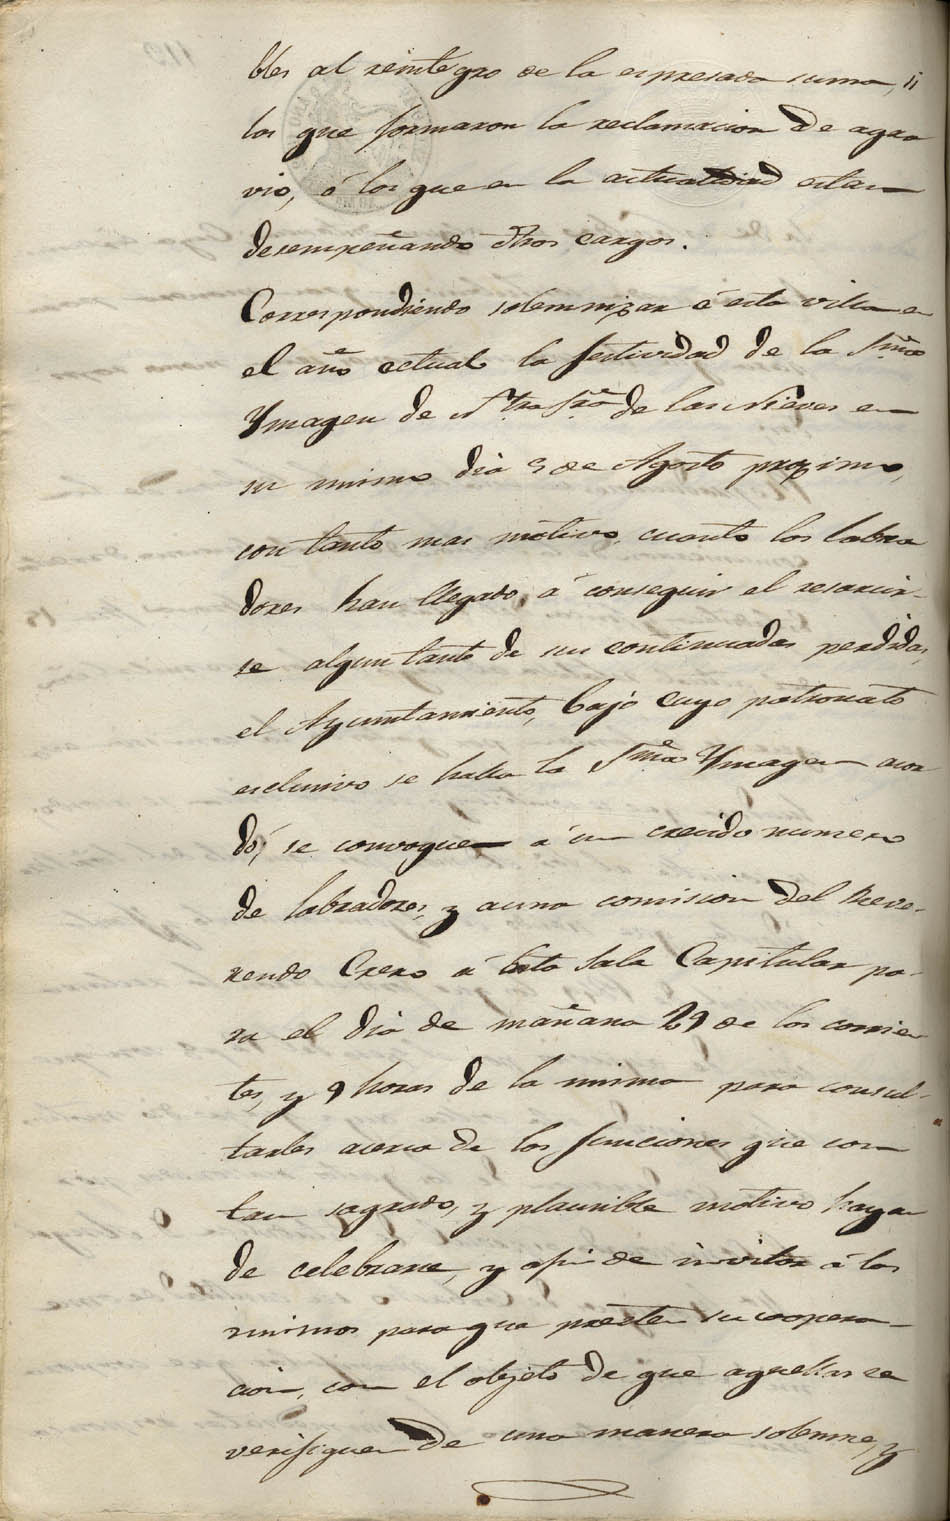 bles al reintegro de la espresada suma, si
los que formaron la reclamacion de agra
vio, ó los que en la actualidad estan
desempeñando dhos cargos.
Correspondiendo solemnizar á esta villa en
el año actual la festividad de la Sma
Ymagen de Ntra Sra de las Nieves en
su mismo dia 5 de Agosto proximo,
con tanto mas motivo, cuanto los labra
dores han llegado á conseguir el resarcir-
se algun tanto de sus continuadas perdidas,
el Ayuntamiento, bajo cuyo patronato
esclusivo se halla la Sma Ymagen acor
dó, se convoquen á un crecido numero
de labradores, y a una comision del Reve-
rendo Clero á esta Sala Capitular pa-
ra el dia de mañana 29 de los corrien
tes, y 9 horas de la misma para consul-
tarles acerca de los funciones que con
tan sagrado, y plausible motivo hayan
de celebrarse, y a fin de invitar á los
mismos para que presten su coopera-
cion, con el objeto de que aquellas se
verifiquen de una manera solemne, y